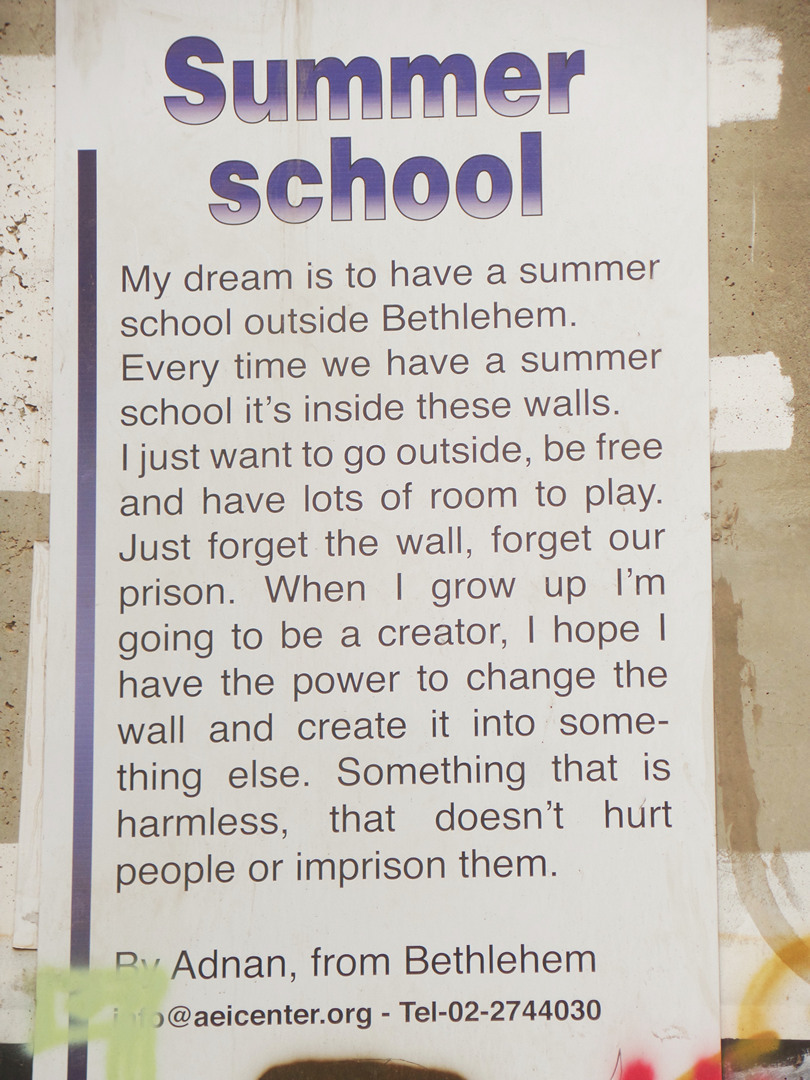 Summer
school
My dream is to have a summer
school outside Bethlehem.
Every time we have a summer
school it's inside these walls.
I just want to go outside, be free
and have lots of room to play.
Just forget the wall, forget our
prison. When I grow up I'm
going to be a creator, I hope I
have the power to change the
wall and create it into some-
thing else. Something that is
harmless, that doesn't hurt
people or imprison them.
By Adnan, from Bethlehem
info@aeicenter.org - Tel-02-2744030